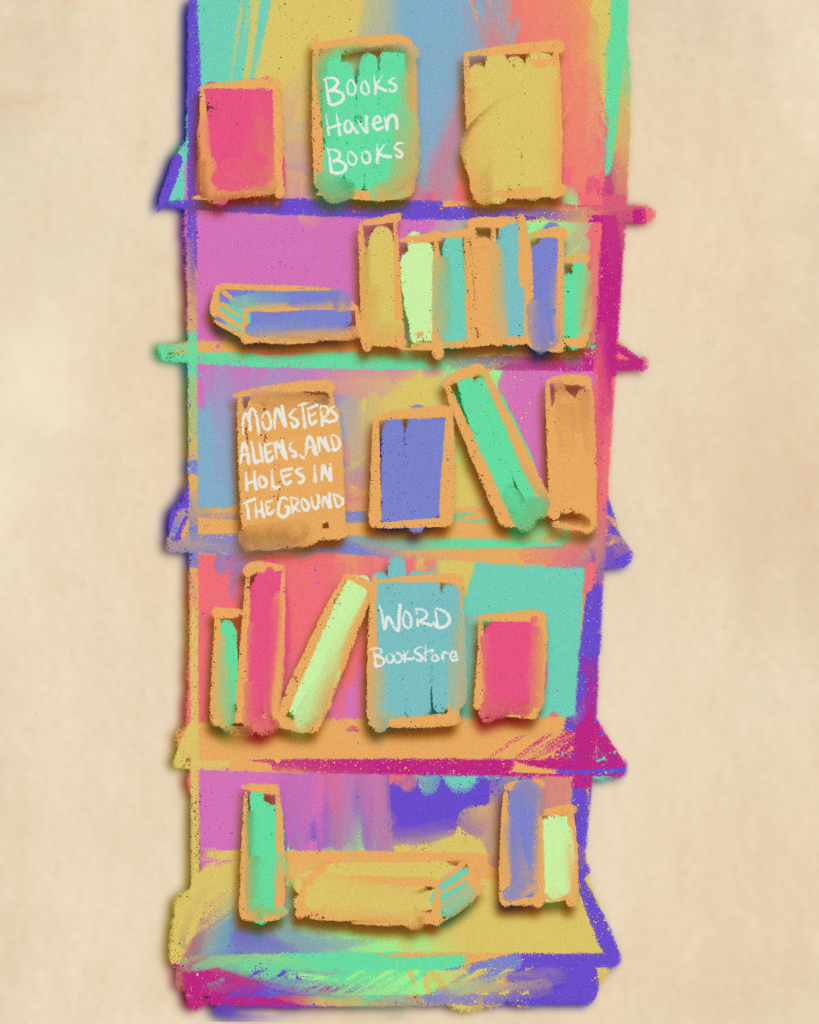 Books
Haven
Books
MONSTERS
ALIENS, AND
HOLES IN
THE GROUND
WORD
BookStore